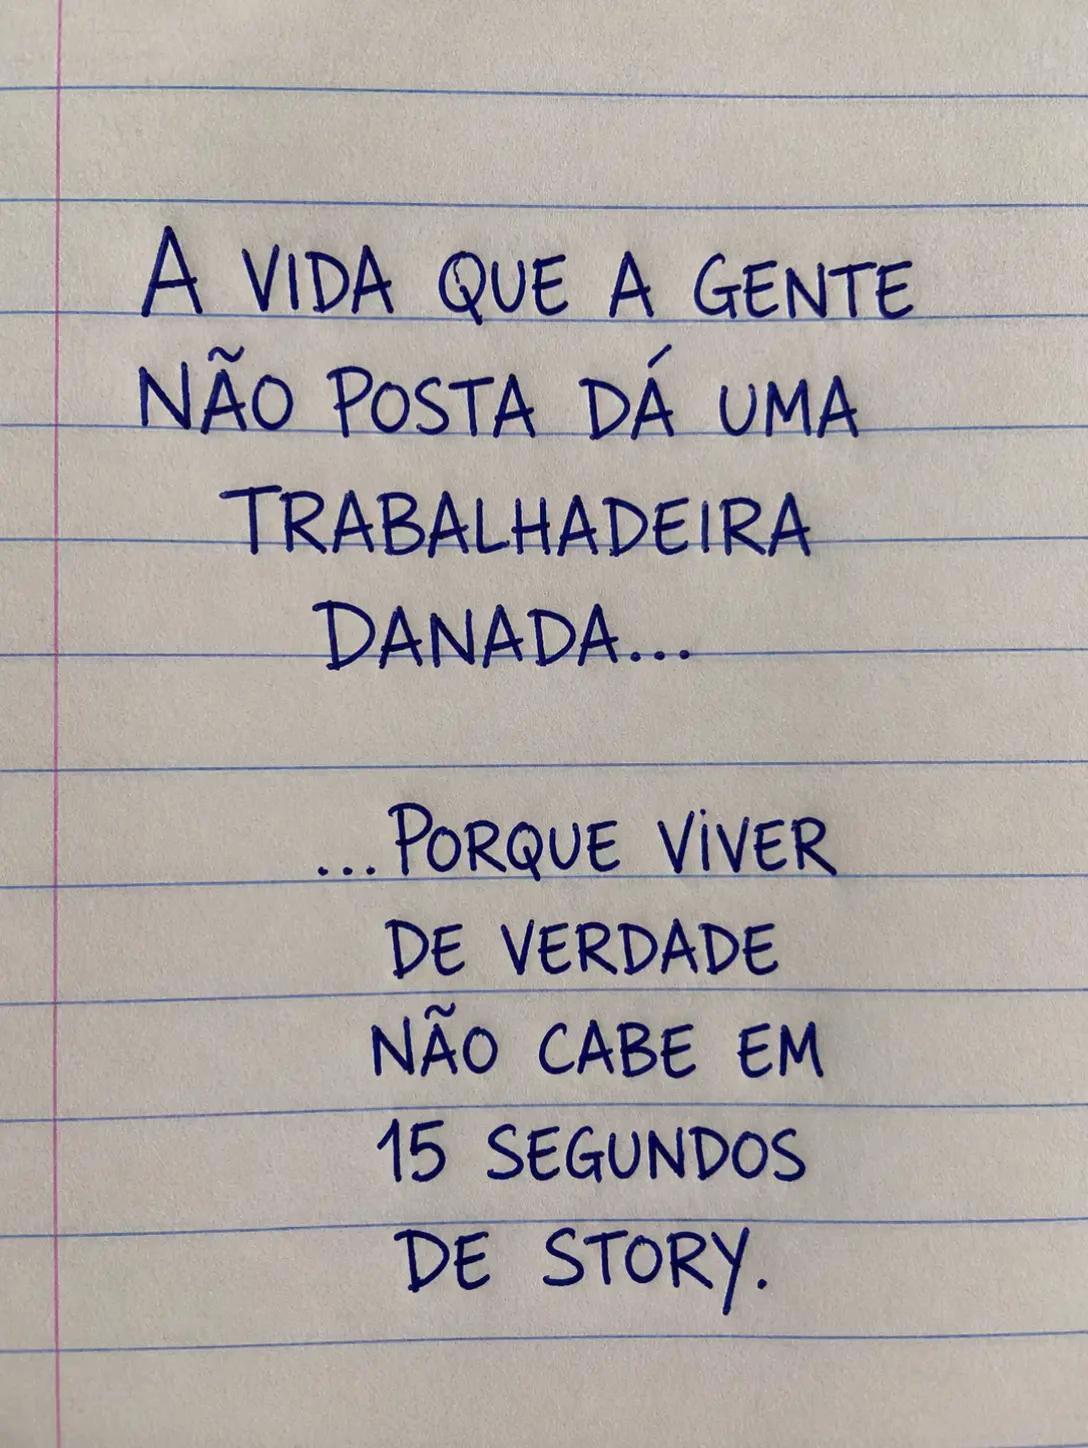 A VIDA QUE A GENTE
NÃO POSTA DÁ UMA
TRABALHADEIRA
DANADA...
...PORQUE VIVER
DE VERDADE
NÃO CABE EM
15 SEGUNDOS
DE STORY.